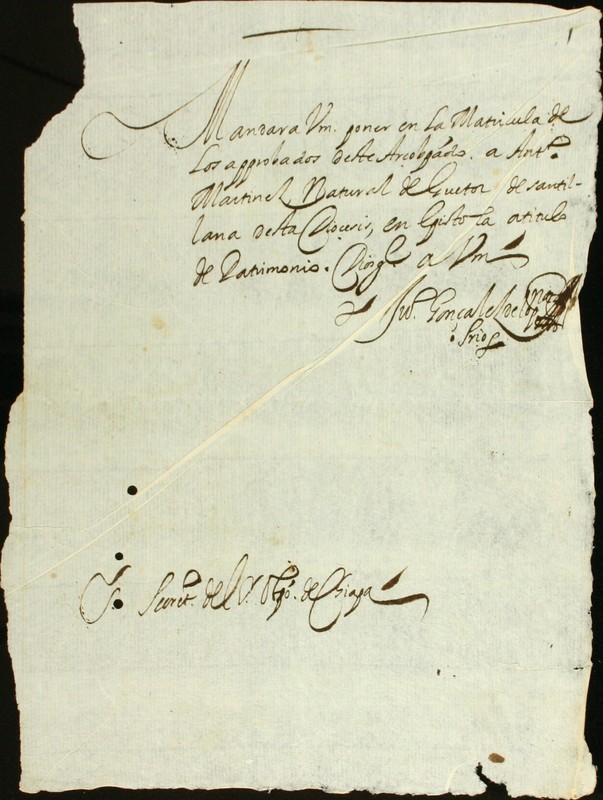 Mandara Vm. poner en La Matricula de
Los approbados deste Arcobpado. a Antº.
Martinez, Natural de Guetor de santil-
lana desta Diocesis, en Epistola a titulo
de Patrimonio. Diosge. a Vm
Juº. Gonçalez de
Srº. Secretº. del Sr. Obpo. de Chiapa